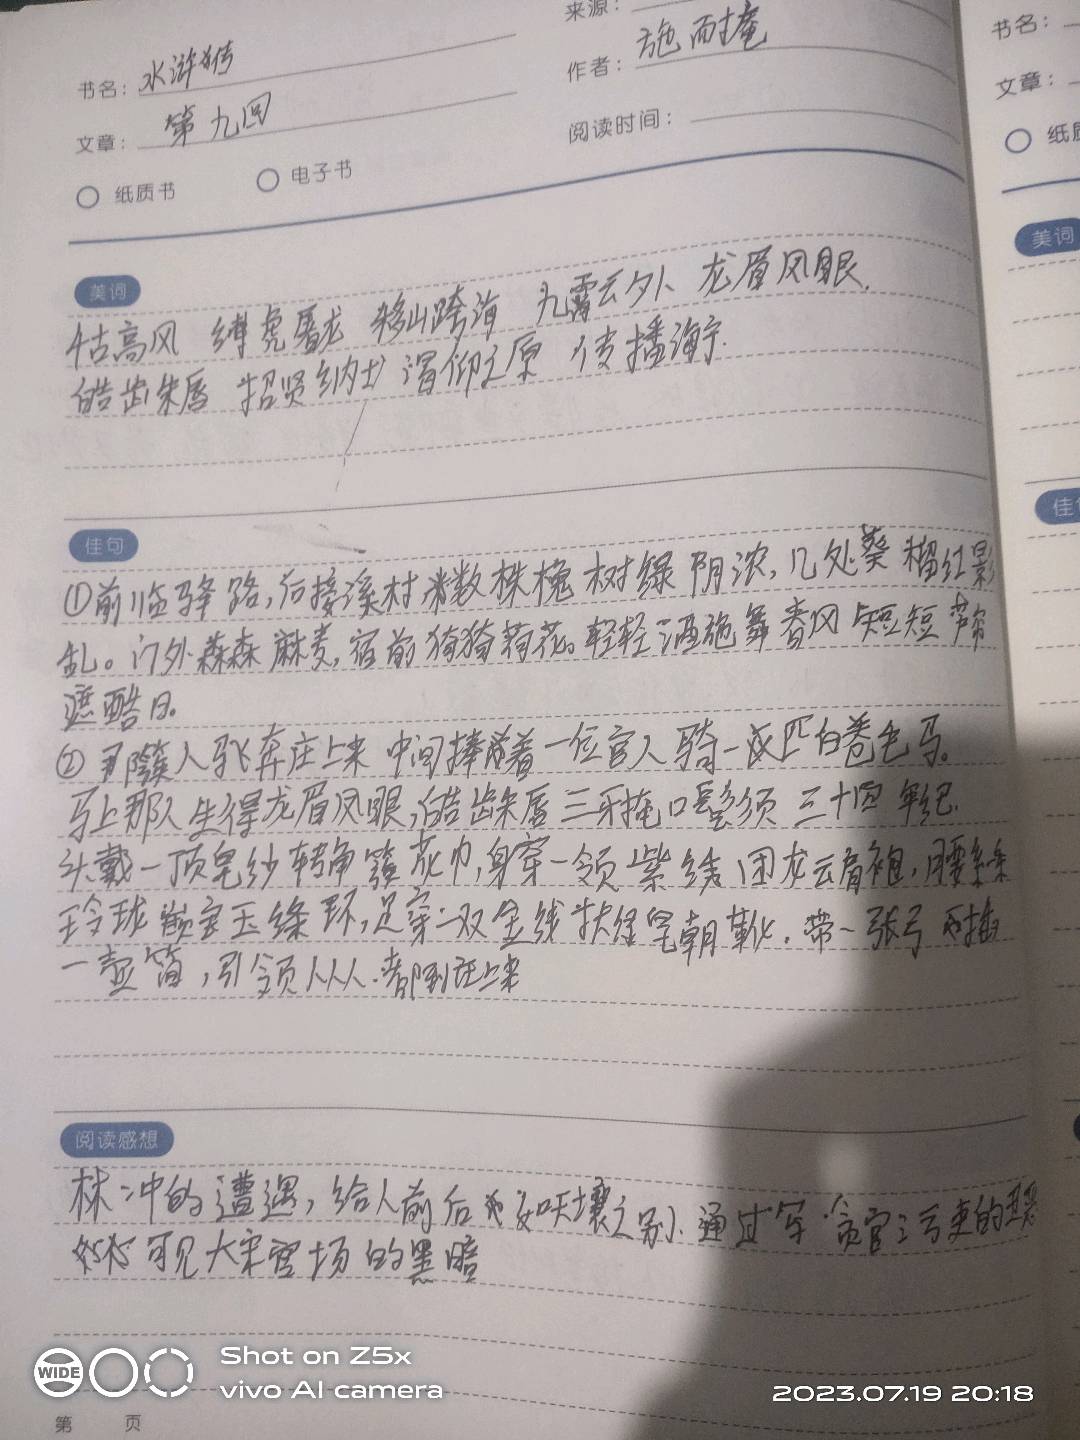 来源：
书名：水浒传
作者：施耐庵
文章：第九回
阅读时间：
纸质书 电子书
书名：
文章：
纸质
美词
美词
佳句
高风 缚虎屠龙 移山跨海 九霄云外 龙眉凤眼.
皓齿朱唇 招贤纳士 渴仰之 传播海宇.
佳句
①前临驿路,后接溪村 数株槐树绿阴浓,几处葵榴红影
乱。门外森森麻麦,窗前猗猗荷花。轻轻酒旆舞春风 短短芦帘
遮酷日。
②那簇人马飞奔庄上来 中间捧着一位官人骑一匹白卷毛马。
马上那人生得龙眉凤眼,皓齿朱唇 三牙掩口髭须 三十四 年纪.
头戴一顶皂纱转角簇花巾,身穿一领紫绣团龙云肩袍,腰系
玲珑嵌宝玉绦环,足穿一双金线抹绿皂朝靴.带一张弓 插
一壶箭,引领人从.都到庄上来
阅读感想
林冲的遭遇,给人前后 如天壤之别.通过写 贪官污吏的
可见大宋官场的黑暗
WIDE
Shot on Z5x
vivo AI camera
2023.07.19 20:18
第 页